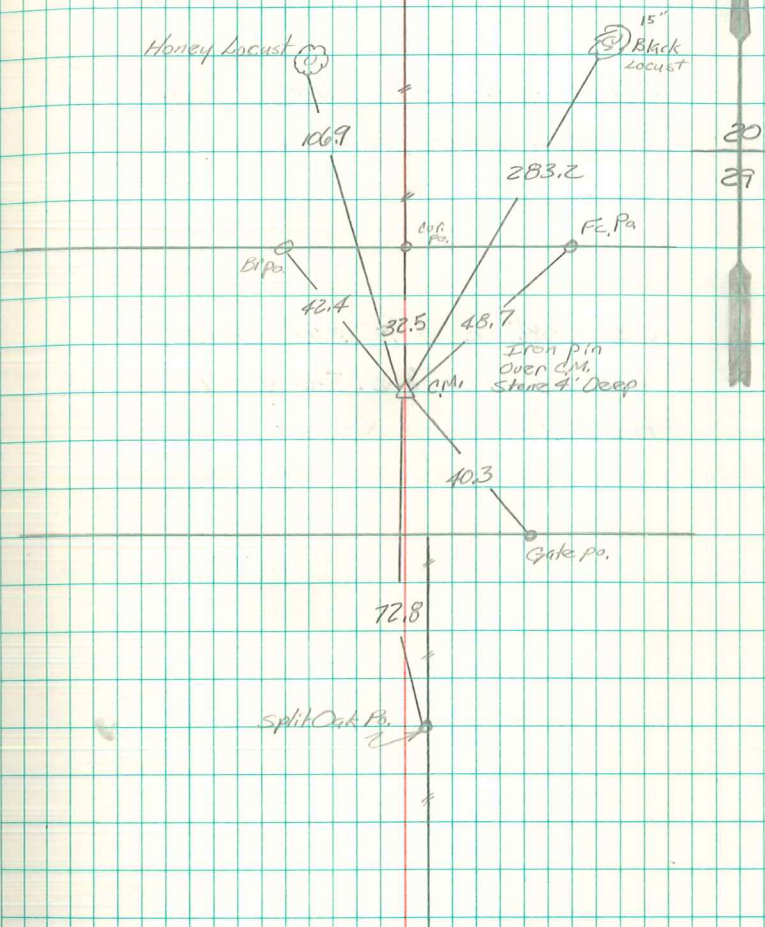 15"
Honey Locust
Black
Locust
106.9
20
283.2
29
cor.
po.
Fc. Po.
Br po.
42.4
32.5
48.7
Iron pin
Over C.M.
Stone 4' Deep
C.M.
40.3
Gate po.
72.8
Split Oak Po.